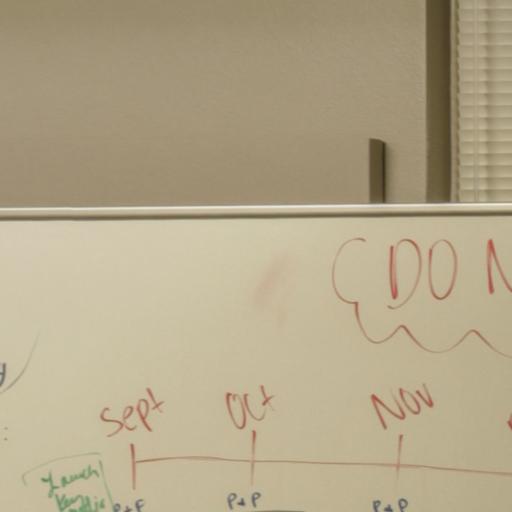 DO N
Sept Oct Nov
Launch
P+P P+P P+P